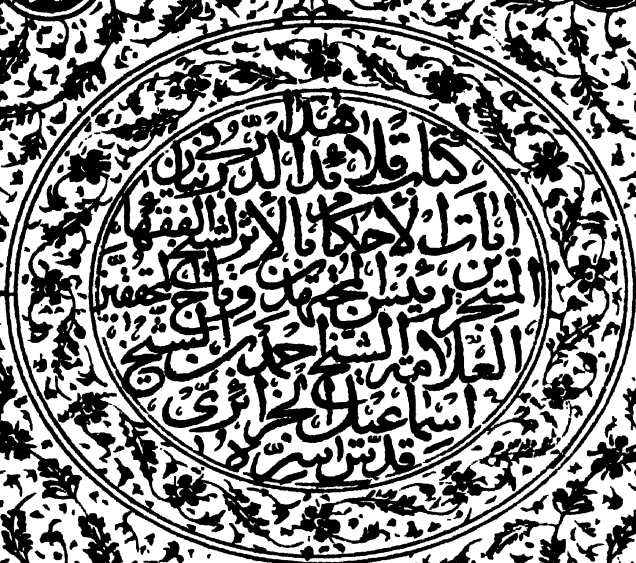 هذا
كتاب قلائد الدرر في بيان
ايات الأحكام بالأثر لشيخ الفقهاء
المتبحرين رئيس المجتهدين وتاج المحققين
العلامة الشيخ احمد بن الشيخ
اسماعيل الجزائري
قدس سره